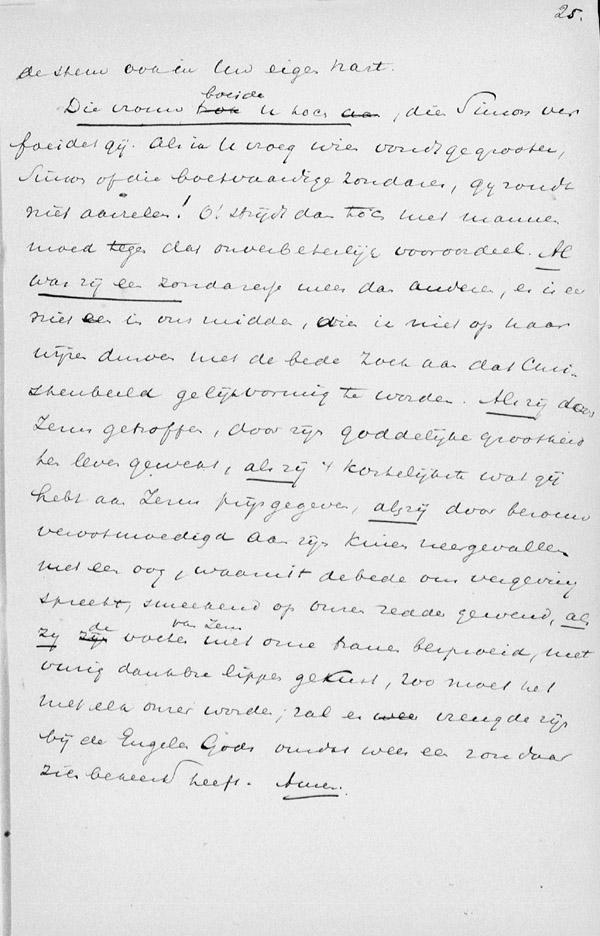 25.
de stem ook in Uw eigen hart.
boeide
Die vrouw trok U toch aan, die Simon ver
foeidet gij. Als ik U vroeg wien vondt ge grooter,
Simon of die boetvaardige zondares, gij zoudt
niet aarzelen! O! strijdt dan toch met mannen
moed tegen dat onverbeterlijk vooroordeel. Al
was zij een zondaresje meer dan anderen, er is er
niet een in ons midden, die u niet op haar
wijzen durven met de bede zoek aan dat Chri-
stenbeeld gelijkvormig te worden. Als zij door
Jezus getroffen, door zijn goddelijke grootheid
ten leven gewekt, als zij 't kostelijkste wat gij
hebt aan Jezus prijsgegeven, als zij door berouw
verootmoedigd aan zijn knieen neergevallen
met een oog, waaruit de bede om vergeving
spreekt, smeekend op onzen redder gewend, als
de van Jezus
zij zijn voeten met onze tranen besproeid, met
vurig dankbre lippen gekust, zoo moet het
met elk onzer worden; zal er weer vreugde zijn
bij de Engelen Gods omdat weer een zondaar
zich bekeerd heeft. Amen.